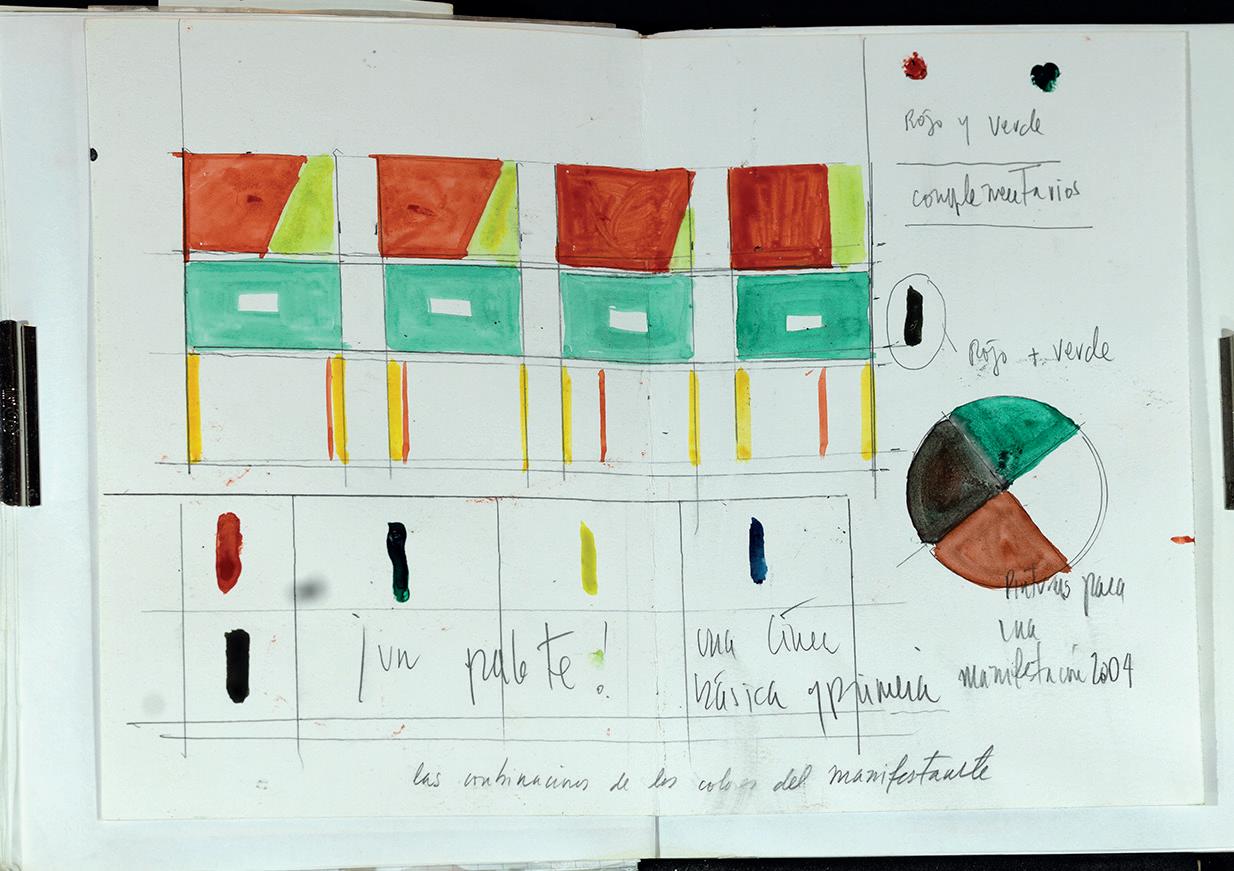 Rojo y verde
complementarios
Rojo + verde
Pinturas para
una
manifestación 2004
¡un palete!
una línea
básica y primera
las combinaciones de los colores del manifestante